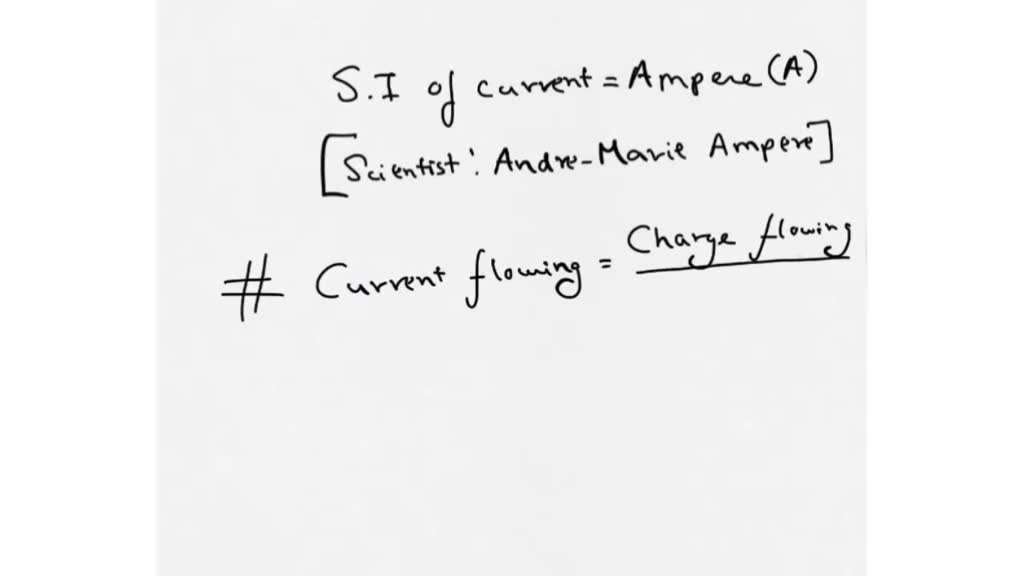 S.I of current = Ampere (A)
[Scientist: Andre-Marie Ampere]
# Current flowing = Charge flowing